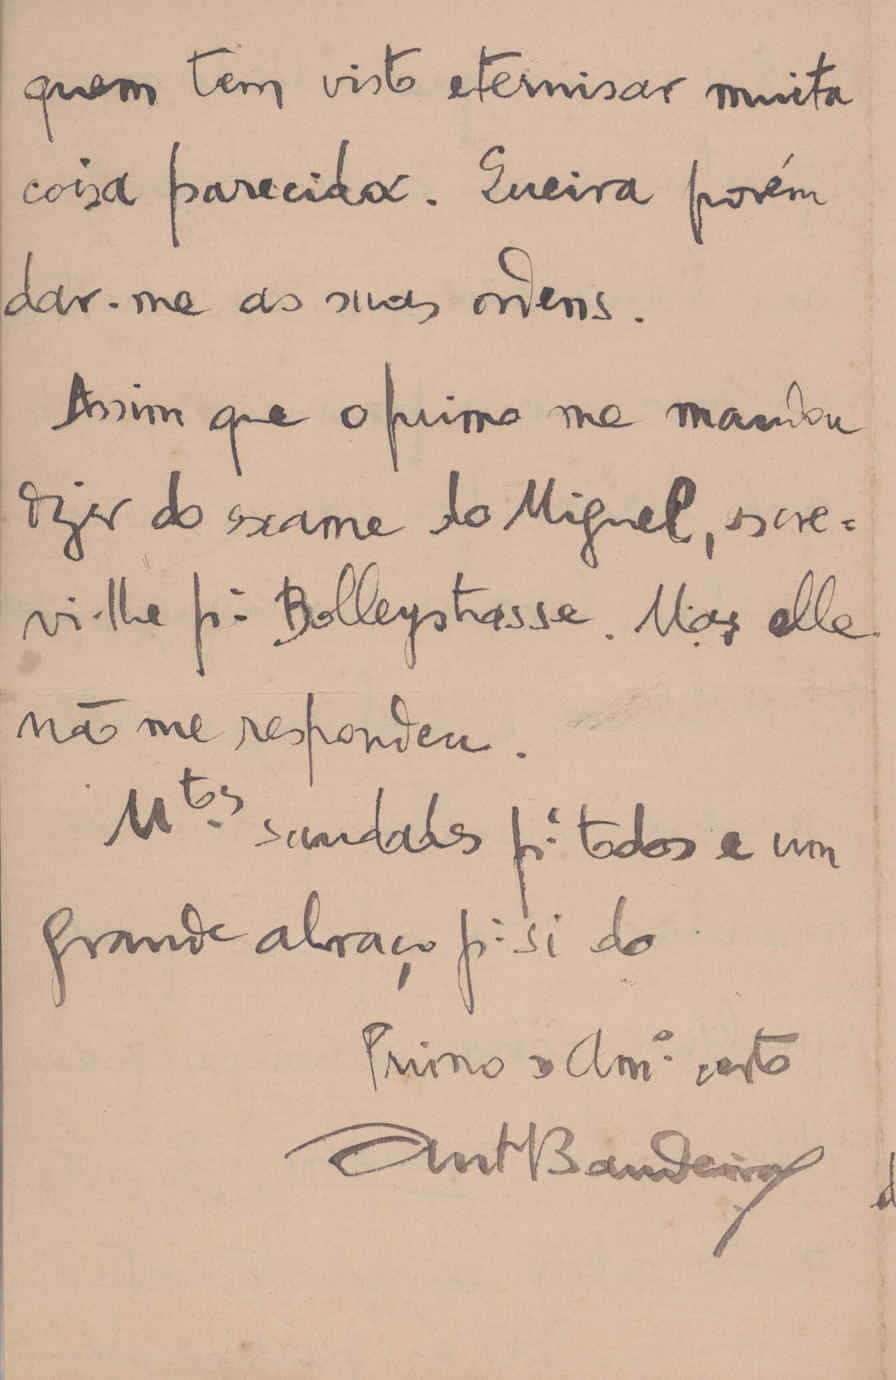 quem tem visto eternisar muita
coisa parecida. Queira porém
dar-me as suas ordens.
Assim que o primo me mandou
dizer do exame do Miguel, escre=
vi-lhe p.ª Bolleystrasse. Mas elle
não me respondeu.
M.tos saudades p.ª todos e um
grande abraço p.ª si do
Primo e Am.º certo
Ant Bandeira